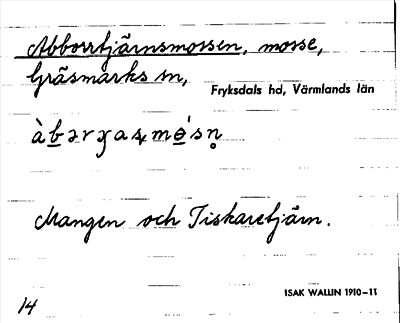 Abborrtjärnsmossen, mosse,
Gräsmarks sn,
Fryksdals hd, Värmlands län
Mangen och Tiskaretjärn.
ISAK WALLIN 1910–11
14